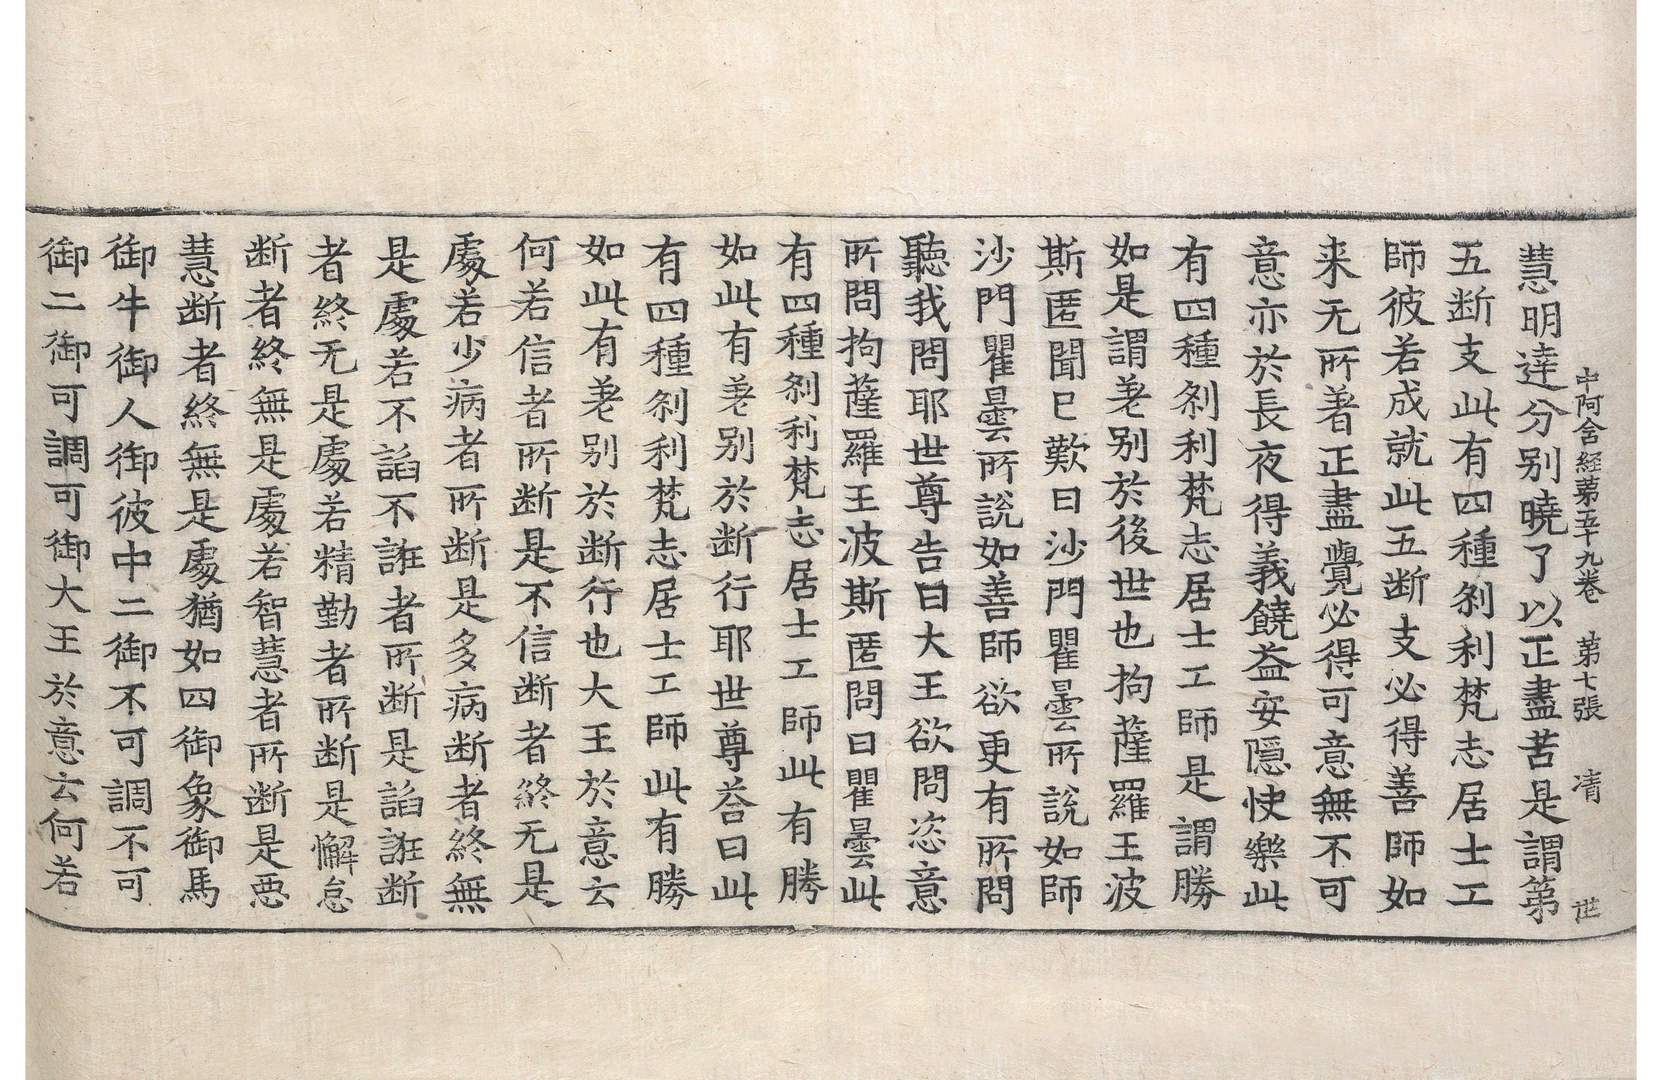 中阿含経苐五十九卷　第七張　清　世
慧明達分别曉了以正盡苦是謂苐
五断支此有四種刹利梵志居士工
師彼若成就此五断支必得善師如
来无所著正盡覺必得可意無不可
意亦於長夜得義饒益安隱快樂此
有四種刹利梵志居士工師是謂勝
如是謂差别於後世也拘薩羅王波
斯匿聞已歎曰沙門瞿曇所說如師
沙門瞿曇所說如善師欲更有所問
聽我問耶世尊告曰大王欲問恣意
所問拘薩羅王波斯匿問曰瞿曇此
有四種刹利梵志居士工師此有勝
如此有差别於断行耶世尊荅曰此
有四種刹利梵志居士工師此有勝
如此有差别於断行也大王於意云
何若信者所断是不信断者終无是
處若少病者所断是多病断者終無
是處若不諂不誑者所断是諂誑断
者終无是處若精勤者所断是懈怠
断者終無是處若智慧者所断是惡
慧断者終無是處猶如四御象御馬
御牛御人御彼中二御不可調不可
御二御可調可御大王於意云何若